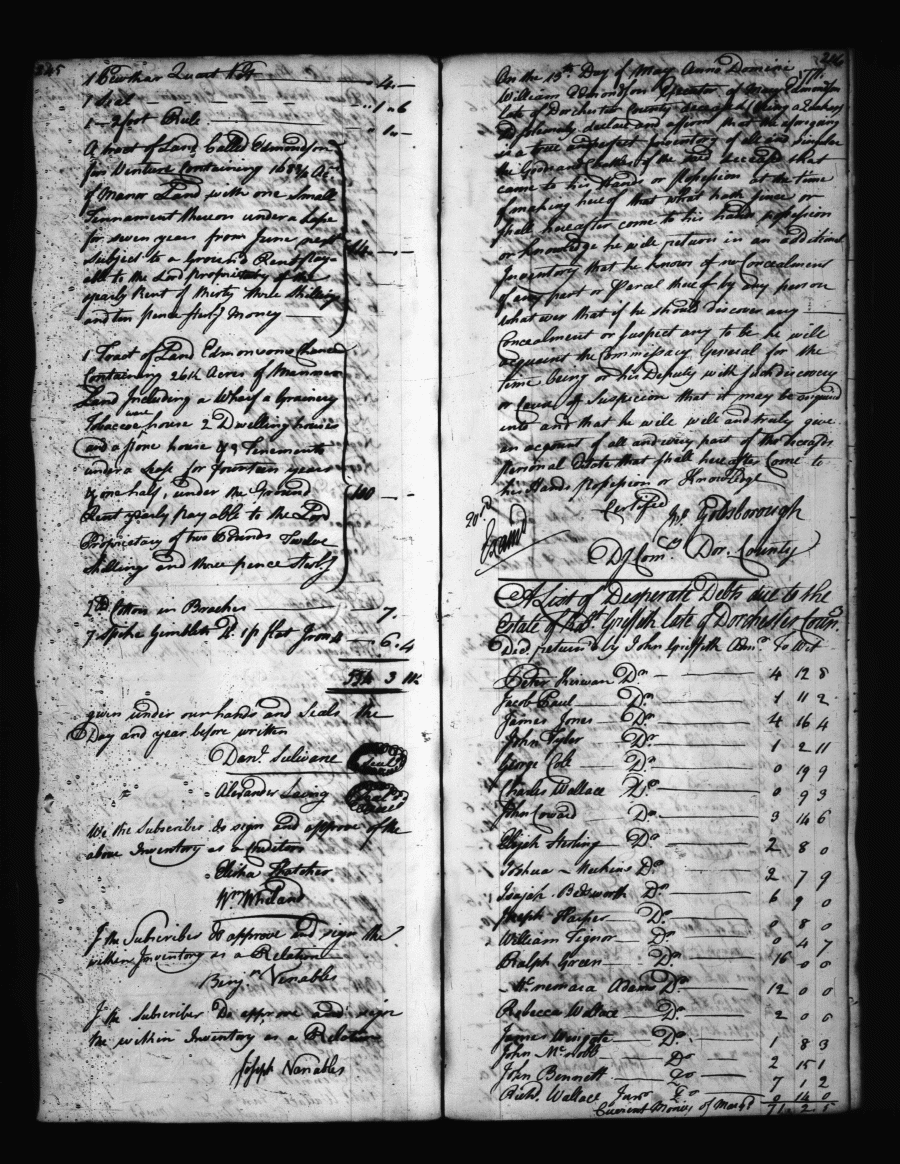 345
1 Pewther Quart Pott — 4 —
1 Seal — " 1 " 6
1 — 2 foot Rule — 1 —
A tract of Land Called Edmondson
Containing Acrs
of Manor Land with one Small
Tennament thereon under a Lease
for seven years from June next
Subject to a Ground Rent Paya-
able to the Lord Proprietary of the
yearly Rent of thirty three Shilling
and ten pence Sterlg Money
1 Tract of Land Edmonsons Chance
Containing Acres of Mannor
Land Including a Wharf a Grainery
Tobacco house 2 Dwelling houses
and a Stone house & Tenements
under a Lease for fourteen years
& one half, under the Ground
Rent yearly payable to the Lord
Proprietary of two Pounds Twelve
Shillings and three pence Sterlg
100 — -
Cotton in Braches — 7.
7 Spike Gemblets 1 flat Iron — 6. 4
given under our hands and Seals the
Day and year before written
Danl. Sulivane Seal
Alexander Laing Seal
We the Subscriber do sign and approve of the
above Inventory as a Creditor
Elisha Thatcher
Wm Wheland
I the Subscriber do approve and sign the
within Inventory as a Relation
Benjn Venables
I the Subscriber Do approve and sign
the within Inventory as a Relation
Joseph Venables
On the 15th Day of May Anno Domini
William Edmondson Executor of Edmondson
late of Dorchester County deceased (being a Quaker)
did solemnly declare and affirm that the aforegoing
is a true and perfect Inventory of all and singular
the Goods and Chattles of the said deceased that
came to his Hands or Possession at the time
of making hereof that what hath since or
shall hereafter come to his hands possession
or knowledge he will return in an additional
Inventory that he knows of no Concealment
of any part or parcel thereof by any person
whatever that if he should discover any
Concealment or Suspect any to be he will
acquaint the Commissary General for the
time being or his Deputy with such discovery
or Cause of Suspicion that it may be enquired
into and that he will well and truly give
an account of all and every part of the deceasds
personal Estate that shall hereafter Come to
his Hands Possession or Knowledge
Certified Jn. Goldsborough
Examd
Dy Comsy Dor. County
A List of Desperate Debts due to the
Estate of Griffith late of Dorchester County
Decd. returned by John Griffith Admr To Wit
Peter Sherwan Dr — 4 12 8
Jacob Paul — Dr — 1 11 2
James Jones — Do — 4 16 4
John Tyler Do — 1 2 11
George Cole Do — 0 19 9
Charles Wallace Do — 0 9 3
John Coward Do — 3 14 6
Elijah Sterling Do — 2 8 0
Joshua Meekins Do — 2 7 9
Isaiah Bedsworth Do — 6 9 0
Joseph Harper Do — 0 8 0
William Tignor — Do — 0 4 7
Ralph Green — Do — 16 0 0
Mcnemara Adams Do — 12 0 0
Rebecca Wallace Do — 2 0 0
James Wingate — Do — 1 8 3
John McNobb — Do — 2 15 1
John Bennett — Do — 7 1 2
Richd. Wallace Junr Do — 0 14 0
Current Money of Maryld 71 2 5